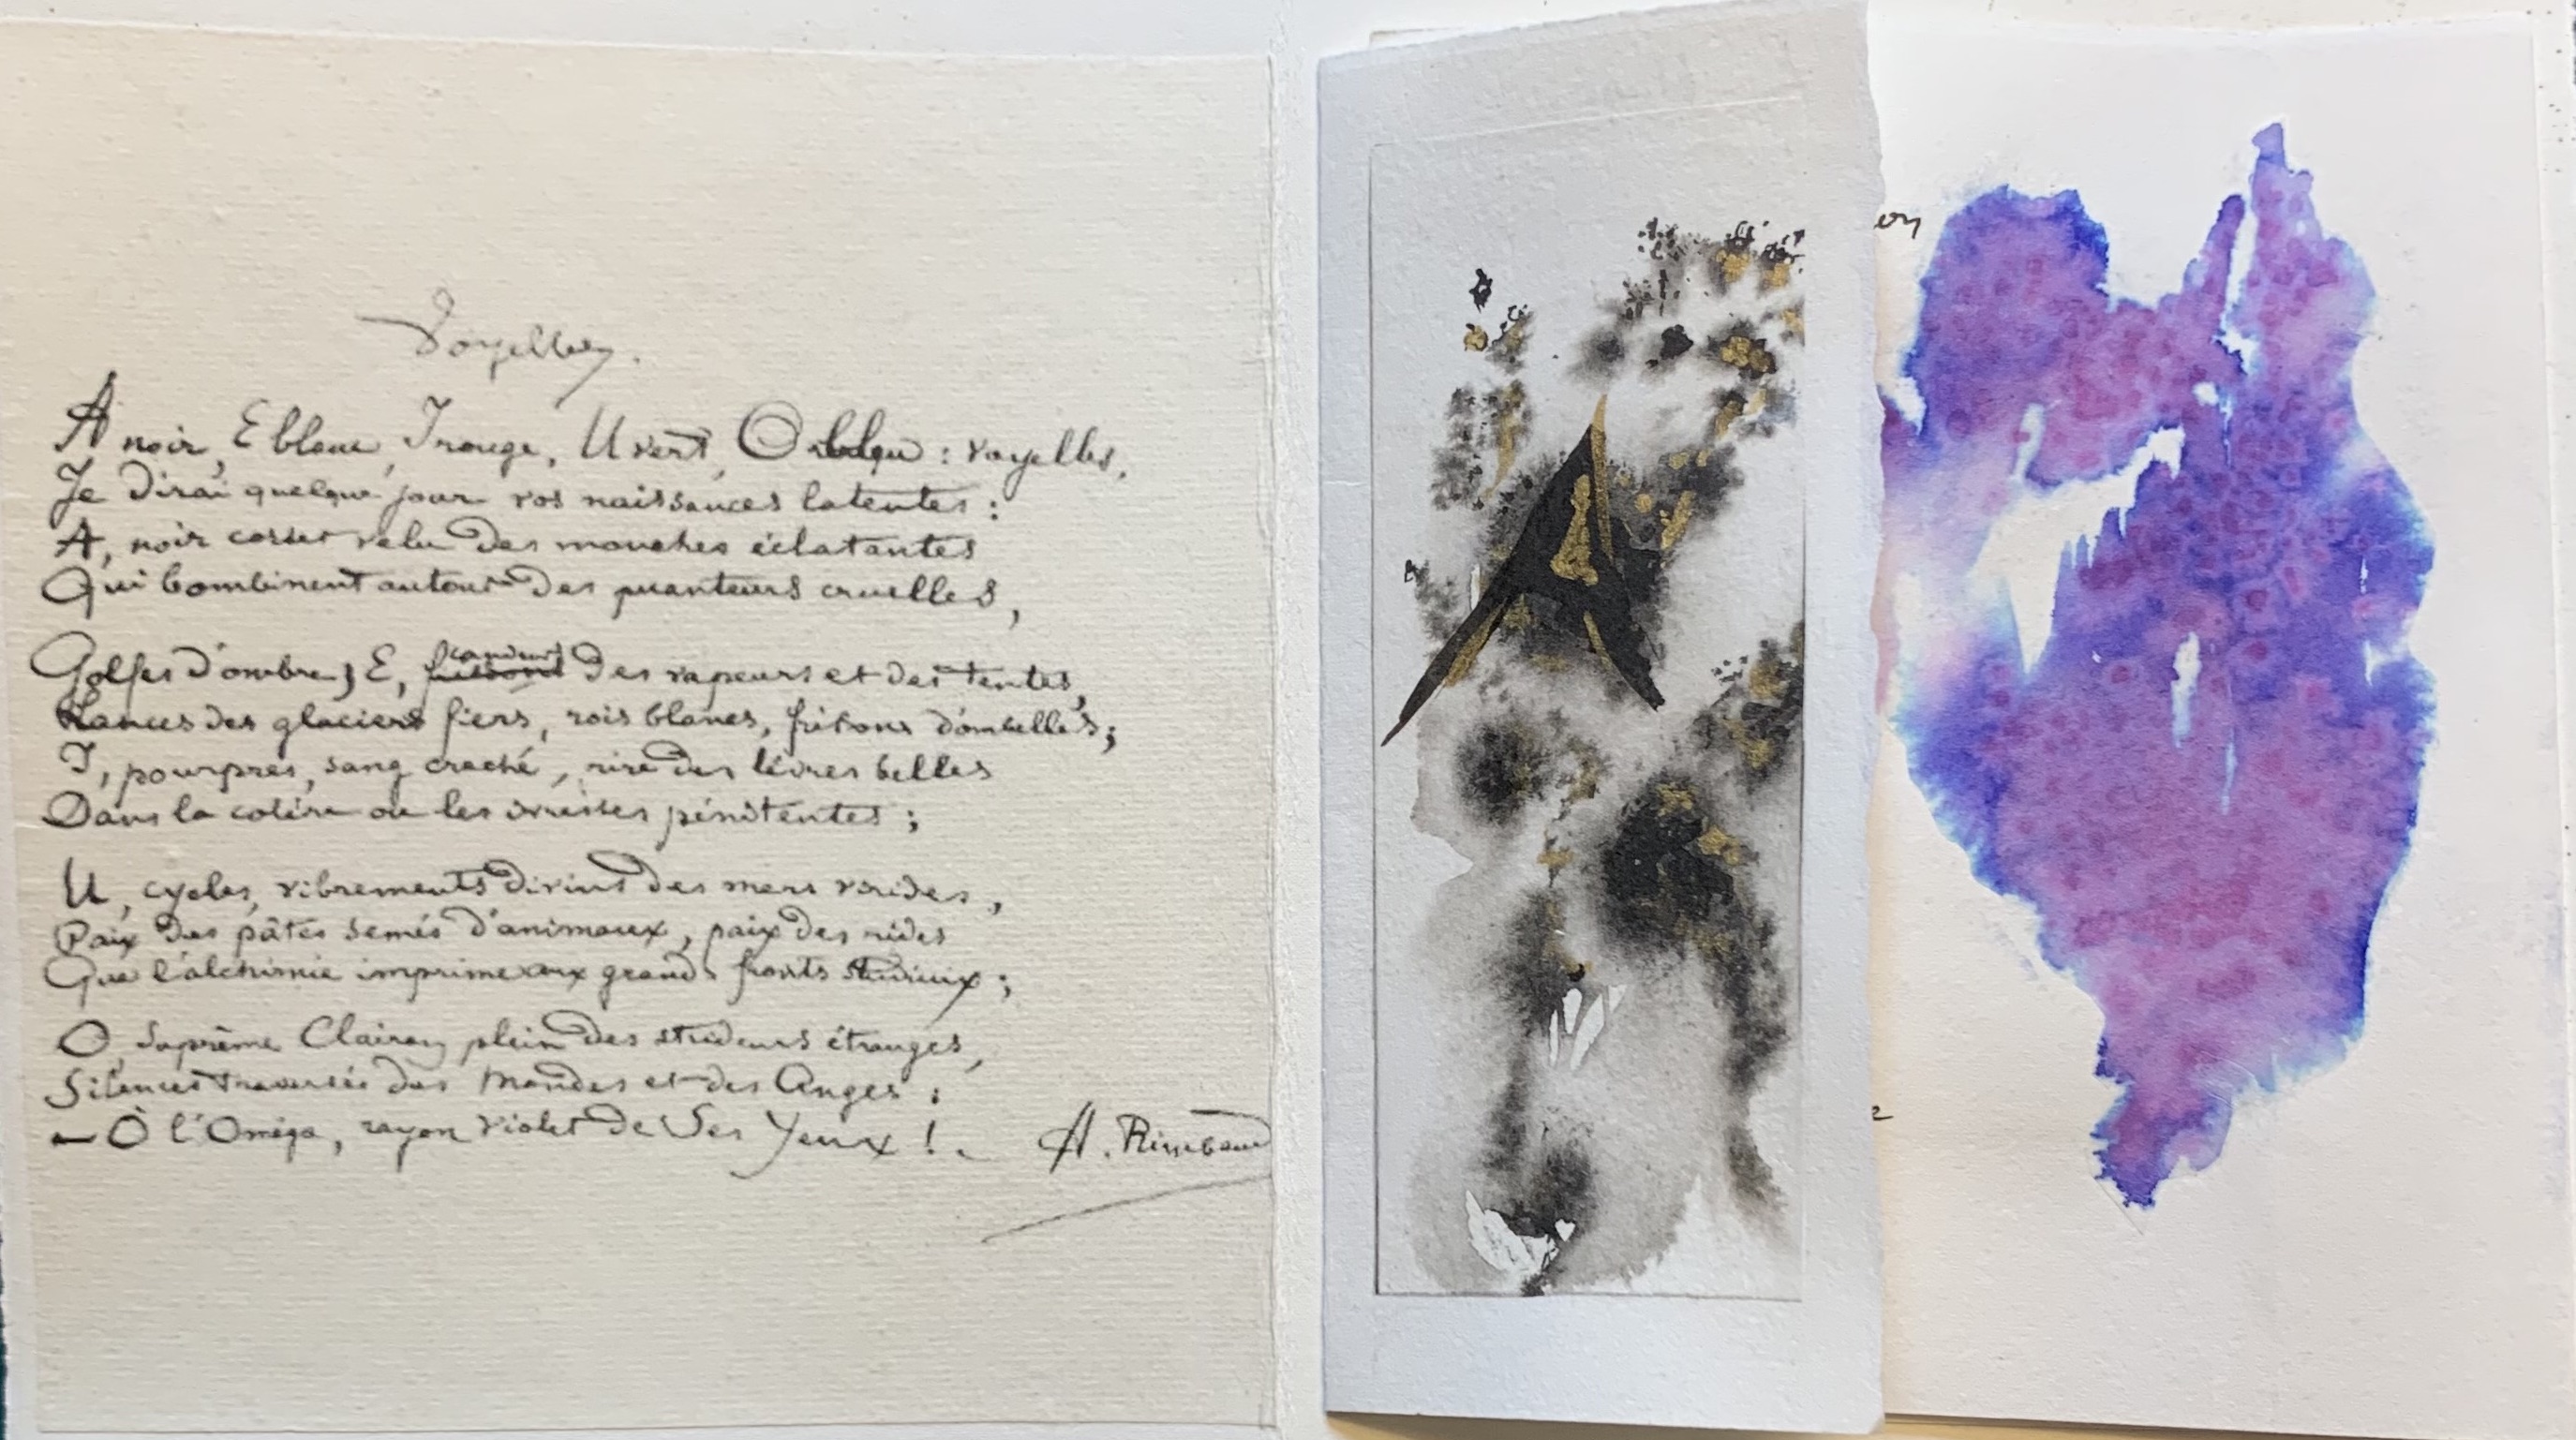 Voyelles.
A noir, E blanc, I rouge, U vert, O bleu : voyelles,
Je dirai quelque jour vos naissances latentes :
A, noir corset velu des mouches éclatantes
Qui bombinent autour des puanteurs cruelles,
Golfes d'ombre ; E, frissons candeurs des vapeurs et des tentes,
Lances des glaciers fiers, rois blancs, frissons d'ombelles ;
I, pourpres, sang craché, rire des lèvres belles
Dans la colère ou les ivresses pénitentes ;
U, cycles, vibrements divins des mers virides,
Paix des pâtis semés d'animaux, paix des rides
Que l'alchimie imprime aux grands fronts studieux ;
O, Suprême Clairon plein des strideurs étranges,
Silences traversés des Mondes et des Anges :
— O l'Oméga, rayon violet de Ses Yeux ! -
A. Rimbaud
A
on